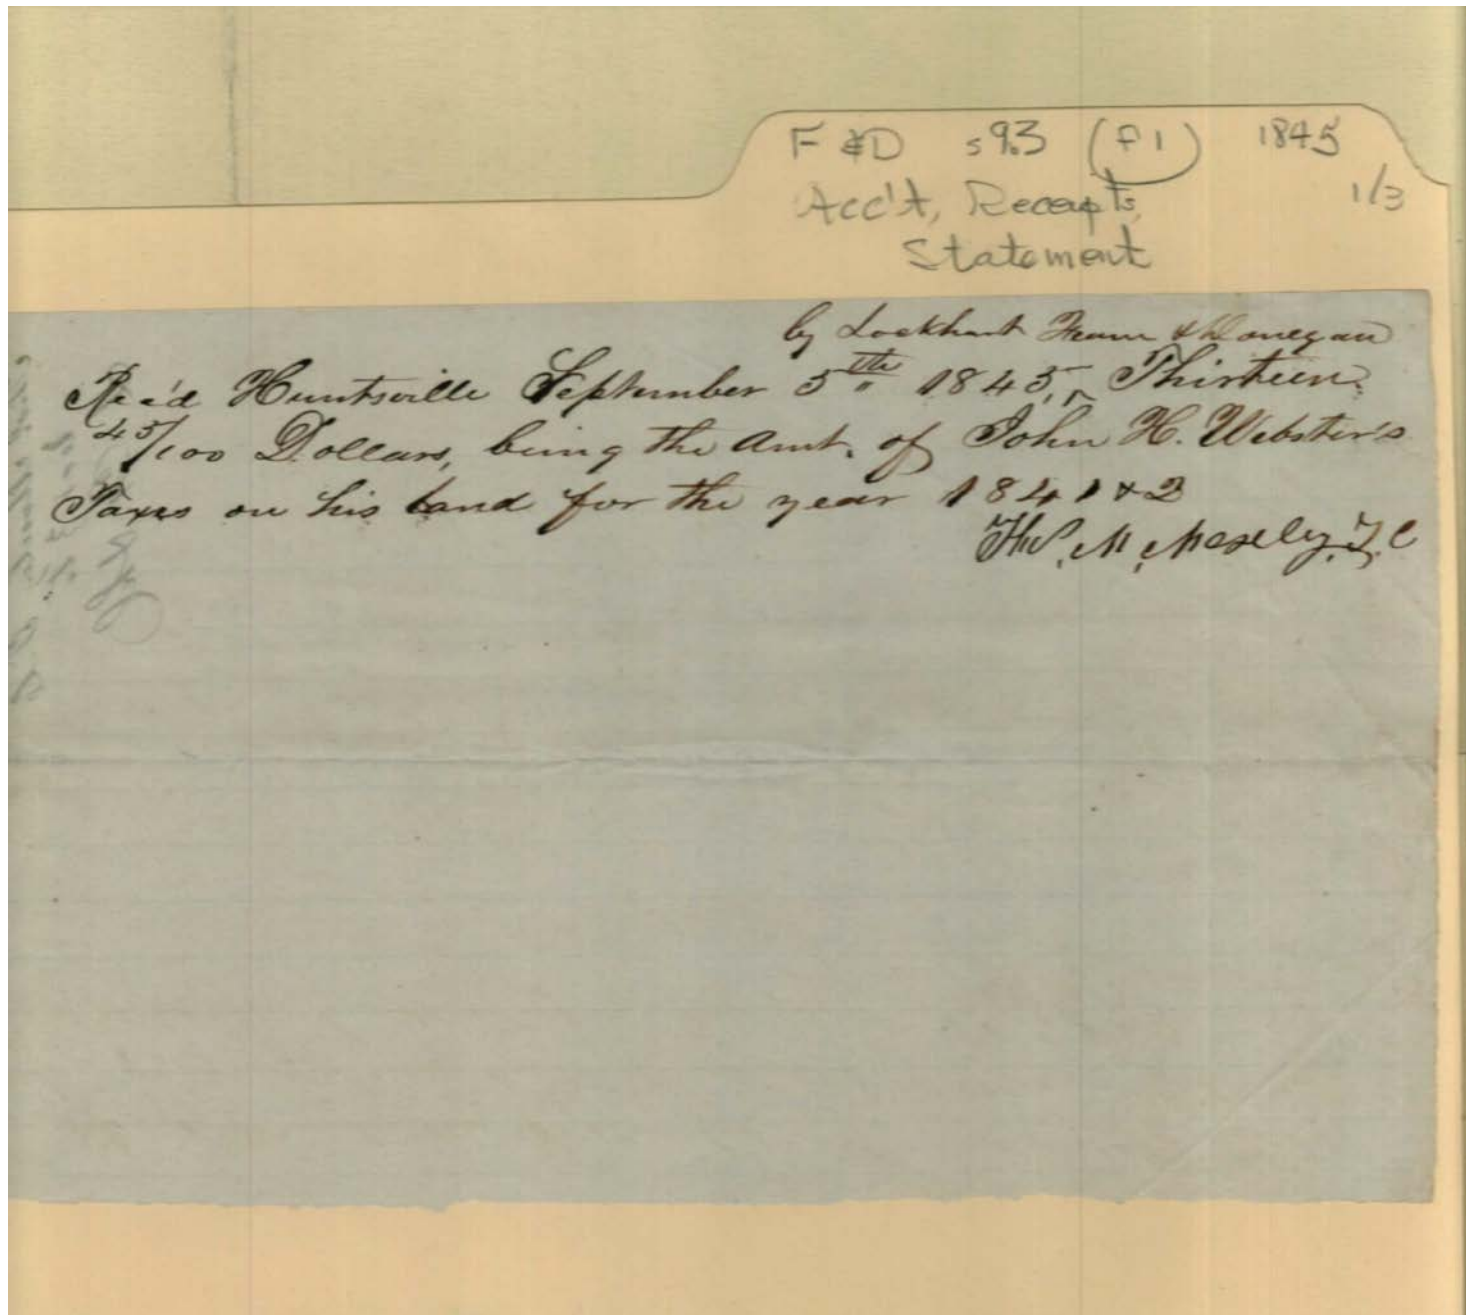 F & D s9.3 (f1) 1845
1/3
Acc't, Receipts,
Statement
by Lockhart Fearn & Donegan
Rec'd Huntsville September 5th 1845, ^ Thirteen
45/100 Dollars, being the Amt. of John H. Webster's
Taxes on his land for the year 1841 & 2
M. Moseley, T. C